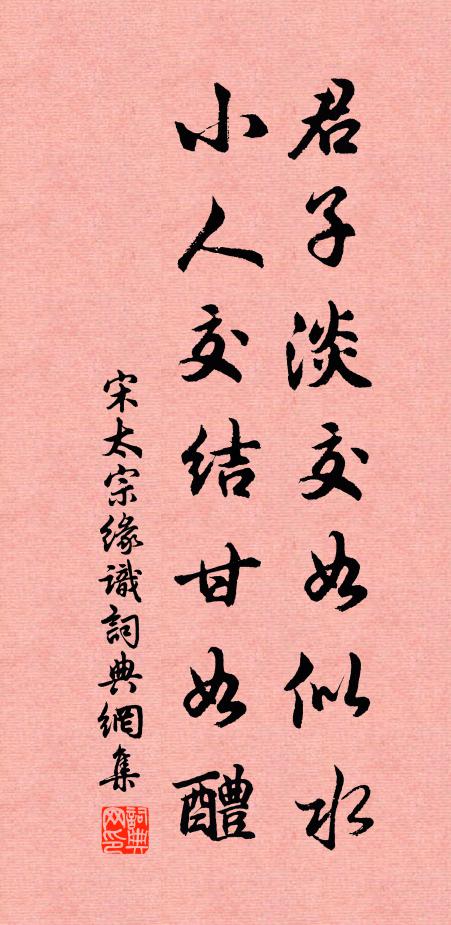 君子淡交如似水
小人交结甘如醴
宋太宗缘識詞典網集
詞典网印